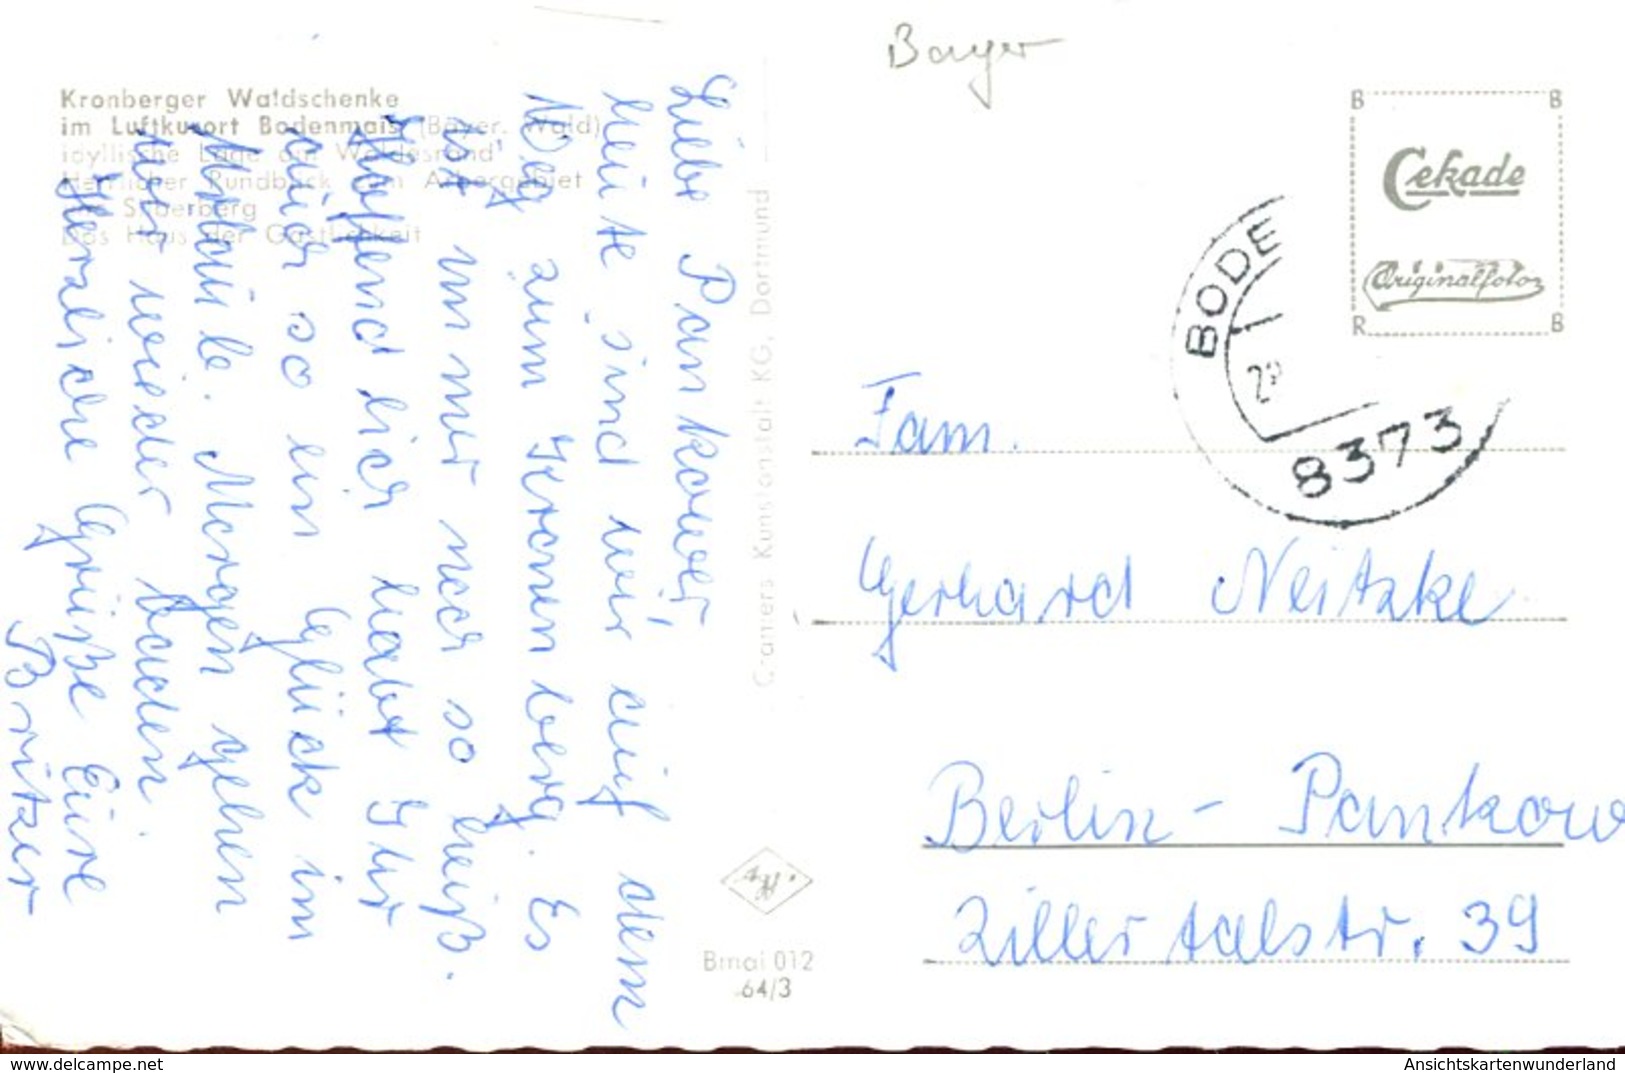 Bayer
Kronberger Waldschenke
im Luftkurort Bodenmais (Bayer. Wald)
idyllische Lage am Waldesrand
Herrlicher Rundblick zum Arbergebiet
und Silberberg
Das Haus der Gastlichkeit
Liebe Pankower,
heute sind wir auf dem
Weg zum Kronenberg. Es
ist immer noch so heiß.
Hoffendlich habt Ihr
auch so ein Glück im
Urlaub. Morgen gehen
wir wieder baden.
Herzliche Grüße Eure
Britzer
Craniers Kunstanstalt KG, Dortmund
Bmai 012
64/3
B B
Cekade
Originalfoto
R B
BODE
8373
Fam.
Gerhard Neitzke
Berlin-Pankow
Zillertalstr. 39
delcampe.net
Ansichtskartenwunderland